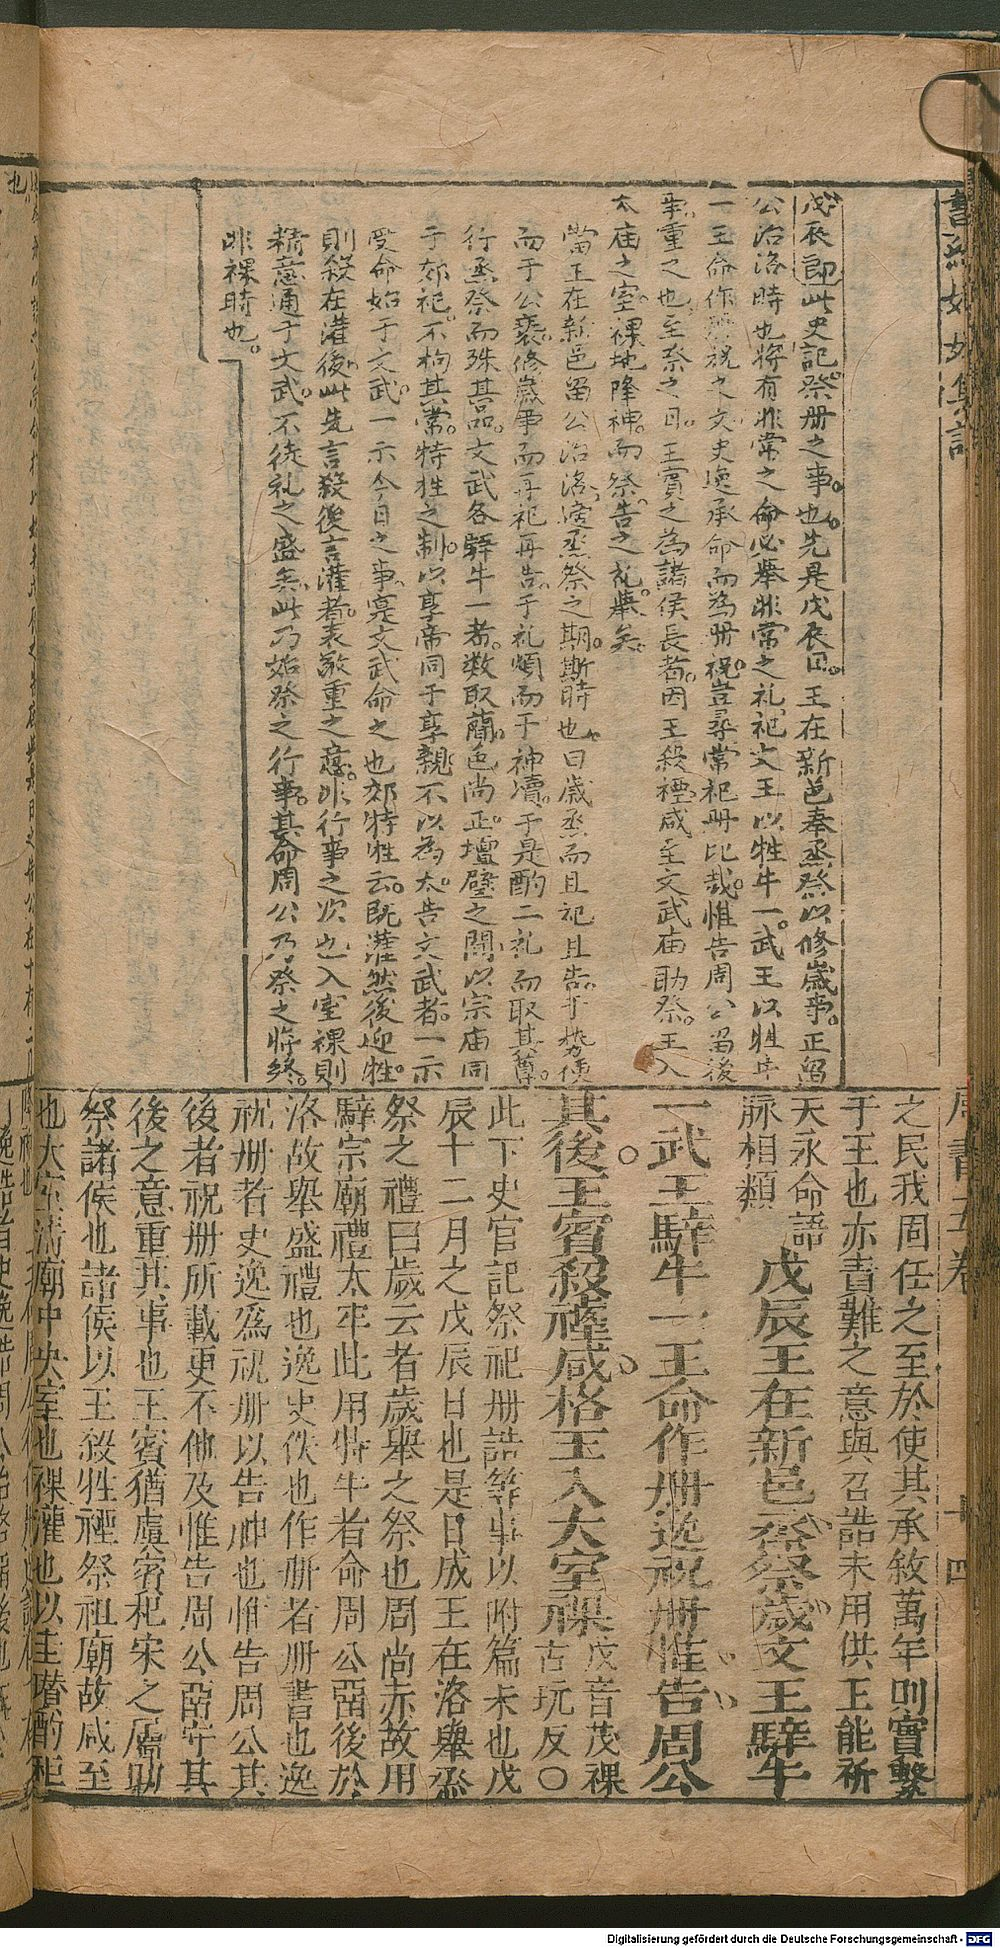 戊辰節此史記祭册之事也先是戊辰日王在新邑奉烝祭以修歲事正留
公治洛時也將有非常之命必舉非常之礼祀文王以牲牛一武王以牲牛
一王命作册祝之文史逸承命而為册祝豈尋常祀册比哉惟告周公留後
事重之也至祭之日王賓之為諸侯長者因王殺禋咸至文武庙助祭王入
太庙之室祼地降神而祭告之礼畢矣
當王在新邑留公治洛適烝祭之期斯時也曰歲烝而且祀且告于勢便
而于公褻修歲事而再祀再告于礼煩而于神瀆于是酌二礼而取其尊
行烝祭而殊其品文武各騂牛一者数取蕳色尚正壇壁之間以宗庙同
于郊祀不拘其常特牲之制以享帝同于享親不以為太告文武者一示
受命始于文武一示今日之事寔文武命之也郊特牲云既灌然後迎牲
則殺在灌後此先言殺後言灌者表敬重之意非行事之次也入室祼則
精意通于文武不徒礼之盛矣此乃始祭之行事其命周公乃祭之將終
非祼時也
周書五卷 十四
之民我周任之至於使其承敘萬年則實繫
于王也亦責難之意與召誥末用供王能祈
天永命語脉相類
戊辰王在新邑烝祭歲文王騂牛
一武王騂牛一王命作册逸祝册惟告周公
其後王賓殺禋咸格王入太室祼 戊音茂祼古玩反〇
此下史官記祭祀册誥等事以附篇末也戊
辰十二月之戊辰日也是日成王在洛舉烝
祭之禮曰歲云者歲舉之祭也周尚赤故用
騂宗廟禮太牢此用特牛者命周公留後於
洛故舉盛禮也逸史佚也作册者册書也逸
祝册者史逸爲祝册以告神也惟告周公其
後者祝册所載更不他及惟告周公留守其
後之意重其事也王賓猶虞賓杞宋之屬助
祭諸侯也諸侯以王殺牲禋祭祖廟故咸至
也太室清廟中央室也祼灌也以圭瓚酌秬
Digitalisierung gefördert durch die Deutsche Forschungsgemeinschaft - DFG